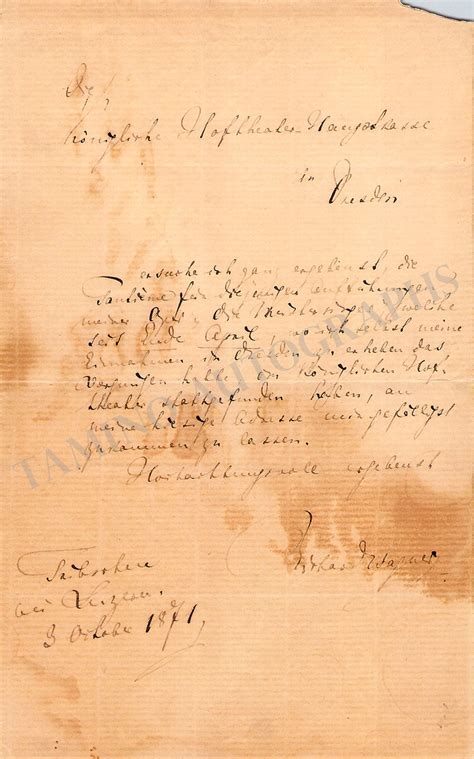 Die
Königliche Hoftheater-Hauptkasse
in
Dresden
ersuche ich ganz ergebenst, die
Tantième für diejenigen Aufführungen
meiner Oper: die Meistersinger, welche
seit Ende April, wo ich selbst meine
Einnahmen in Dresden zu erheben das
Vergnügen hatte, im Königlichen Hof-
theater stattgefunden haben, an
meine hiesige Adresse mir gefälligst
zukommen zu lassen.
Hochachtungsvoll ergebenst
Richard Wagner
Tribschen
bei Luzern.
3 October 1871.
TAMINO AUTOGRAPHS